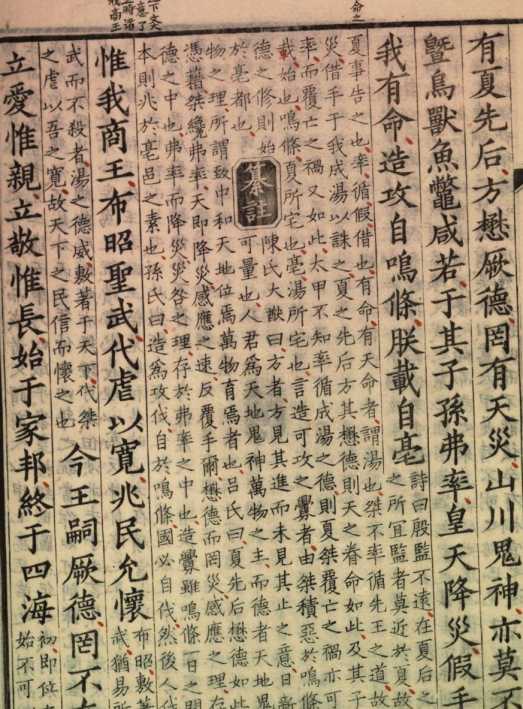 命之
有夏先后方懋厥德罔有天災山川鬼神亦莫不
暨鳥獸魚鼈咸若于其子孫弗率皇天降災假手
我有命造攻自鳴條朕載自亳
詩曰殷監不遠在夏后之
之所宜監者莫近於夏故
夏事告之也率循假借也有命有天命者謂湯也桀不率循先王之道故
災借手于我成湯以誅之夏之先后方其懋德則天之眷命如此及其子
率而覆亡之禍又如此太甲不知率循成湯之德則夏桀覆亡之禍亦可
載始也鳴條夏所宅也亳湯所宅也言造可攻之釁者由桀積惡於鳴條
德之修則始
於亳都也
纂註
陳氏大猷曰方者方見其進而未見其止之意日新
可量也人君爲天地鬼神萬物之主而德者天地鬼
物之理所謂致中和天地位焉萬物育焉者也呂氏曰夏先后懋德如此
憑藉桀纔弗率天即降災感應之速反覆手爾懋德而罔災感應之理存
德之中也弗率而降災災咎之理存於弗率之中也造釁雖鳴條一日之間
本則兆於亳邑之素也孫氏曰造爲攻伐自於鳴條國必自伐然後人伐
惟我商王布昭聖武代虐以寬兆民允懷
布昭敷著
武猶易所
武而不殺者湯之德威敷著于天下代桀
之虐以吾之寬故天下之民信而懷之也
今王嗣厥德罔不
立愛惟親立敬惟長始于家邦終于四海
初即位
始不可